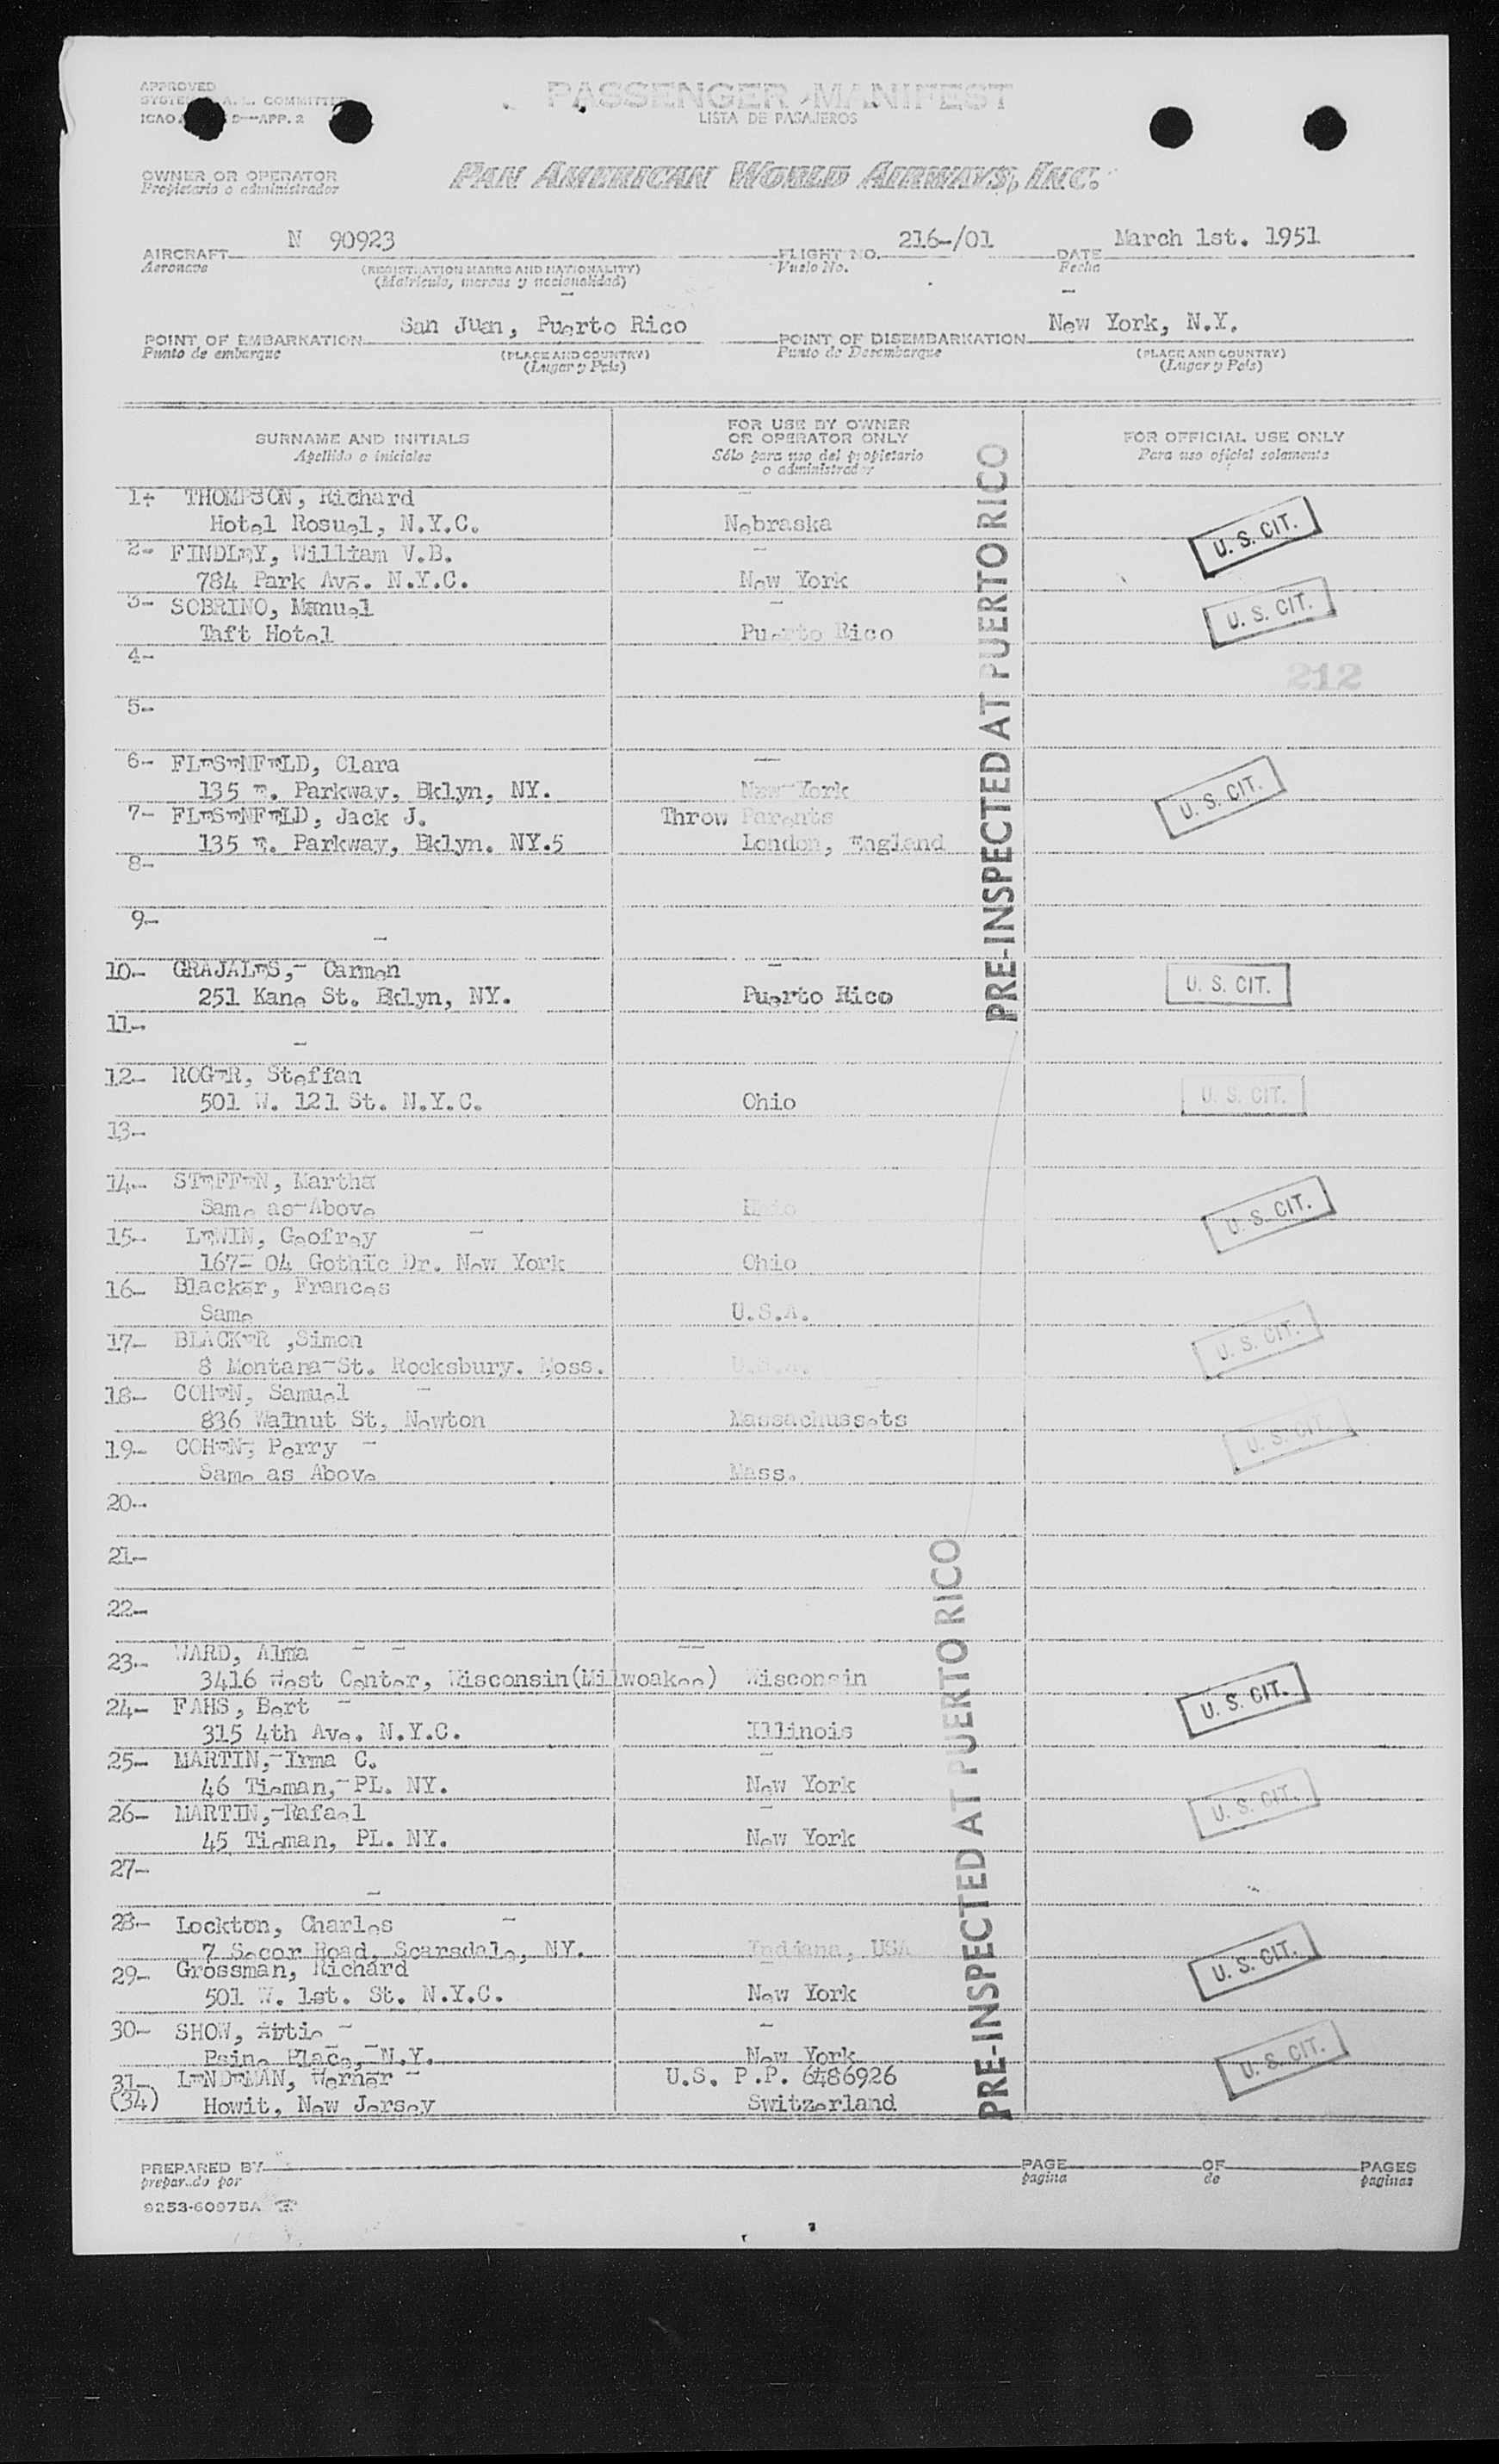 APPROVED
COMMITTEE
ICAO D-APP. 2
PASSENGER MANIFEST
LISTA DE PASAJEROS
OWNER OR OPERATOR
Propietario o administrador
PAN AMERICAN WORLD AIRWAYS, INC.
AIRCRAFT N 90923 FLIGHT NO. 216-/01 DATE March 1st. 1951
Aeronave (REGISTRATION MARKS AND NATIONALITY) Vuelo No. Fecha
(Matricula, marcas y nacionalidad)
POINT OF EMBARKATION San Juan, Puerto Rico POINT OF DISEMBARKATION New York, N.Y.
Punto de embarque (PLACE AND COUNTRY) Punto de Desembarque (PLACE AND COUNTRY)
(Lugar y Pais) (Lugar y Pais)
SURNAME AND INITIALS FOR USE BY OWNER OR OPERATOR ONLY FOR OFFICIAL USE ONLY
Apellido o iniciales Sólo para uso del propietario o administrador Para uso oficial solamente
1- THOMPSON, Richard
Hotel Rosuel, N.Y.C. Nebraska U. S. CIT.
2- FINDLEY, William V.B.
784 Park Ave. N.Y.C. New York
3- SOBRINO, Manuel U. S. CIT.
Taft Hotel Puerto Rico
4-
212
5-
6- FLESENFELD, Clara
135 E. Parkway, Bklyn, NY. New York U. S. CIT.
7- FLESENFELD, Jack J. Throw Parents
135 E. Parkway, Bklyn. NY.5 London, England
8-
9-
PRE-INSPECTED AT PUERTO RICO
10- GRAJALES,- Carmen
251 Kane St. Bklyn, NY. Puerto Rico U. S. CIT.
11-
12- ROGER, Steffan
501 W. 121 St. N.Y.C. Ohio U. S. CIT.
13-
14- STEFFEN, Martha
Same as-Above U. S. CIT.
15- LEWIN, Geofrey
167- 04 Gothic Dr. New York Ohio
16- Blacker, Frances
Same U.S.A.
17- BLACKER ,Simon U. S. CIT.
8 Montana-St. Rocksbury. Moss. U.S.A.
18- COHEN, Samuel
836 Walnut St, Newton Massachussets
19- COHEN, Perry U. S. CIT.
Same as Above Mass.
20-
21-
22-
23- WARD, Alma
3416 West Center, Wisconsin(Milwoakee) Wisconsin
24- FAHS, Bert U. S. CIT.
315 4th Ave. N.Y.C. Illinois
25- MARTIN,-Irma C.
46 Tieman,-PL. NY. New York
26- MARTIN,-Rafael U. S. CIT.
45 Tieman, PL. NY. New York
27-
28- Lockton, Charles
7 Secor Road, Scarsdale, NY. Indiana, USA
29- Grossman, Richard U. S. CIT.
501 W. 1st. St. N.Y.C. New York
30- SHOW, Artie
Peine Place, N.Y. New York
31- LENDEMAN, Werner U.S. P.P. 6486926 U. S. CIT.
(34) Howit, New Jersey Switzerland
PRE-INSPECTED AT PUERTO RICO
PREPARED BY PAGE OF PAGES
preparado por pagina de paginas
9253-60975A